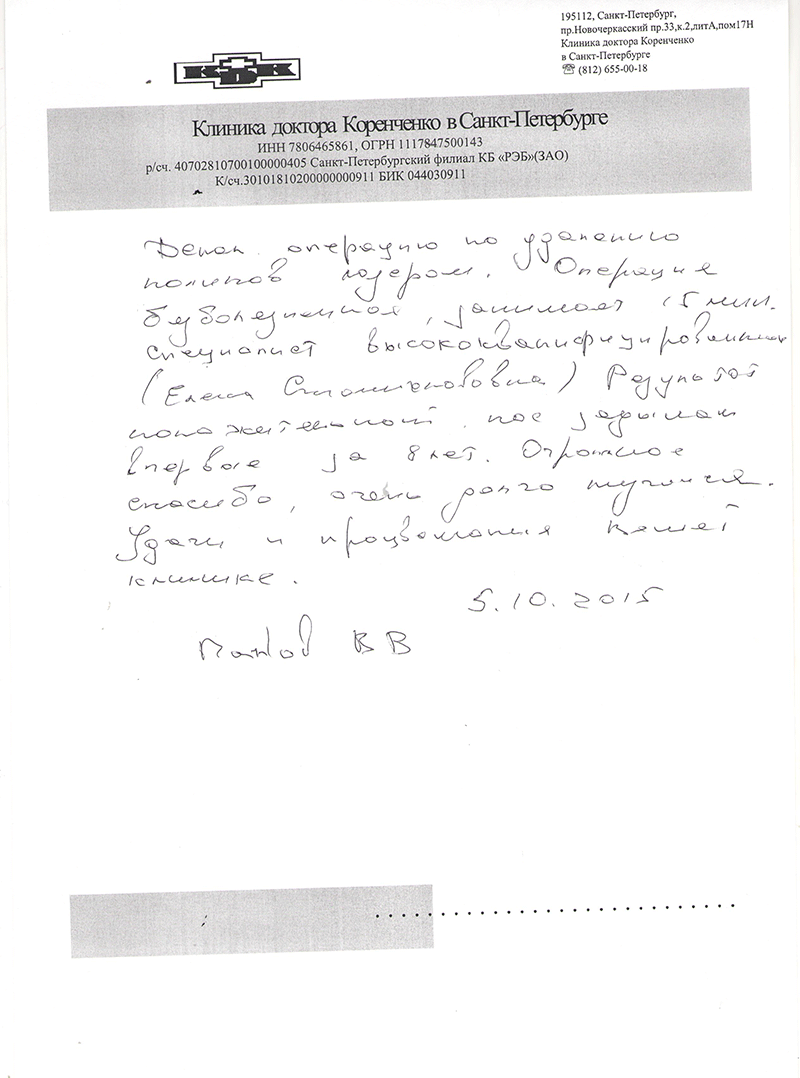 195112, Санкт-Петербург,
пр.Новочеркасский пр.33,к.2,литА,пом17Н
Клиника доктора Коренченко
в Санкт-Петербурге
☏ (812) 655-00-18
КДК
Клиника доктора Коренченко в Санкт-Петербурге
ИНН 7806465861, ОГРН 1117847500143
р/сч. 40702810700100000405 Санкт-Петербургский филиал КБ «РЭБ»(ЗАО)
К/сч.30101810200000000911 БИК 044030911
Делал операцию по удалению
полипов лазером. Операция
безболезненная, занимает 15 мин.
Специалист высококвалифицированный
(Елена) Результат
положительный, нос задышал
впервые за 8 лет. Огромное
спасибо, очень долго мучился.
Удачи и процветания вашей
клинике.
5.10.2015
В В